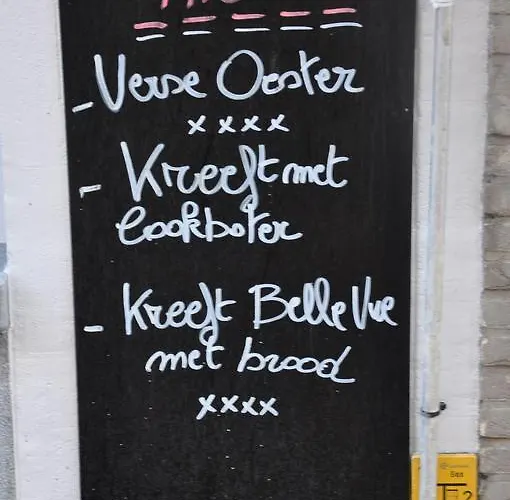 - Verse Oester
xxxx
- Kreeft met
lookboter
- Kreeft Belle Vue
met brood
xxxx
Gas